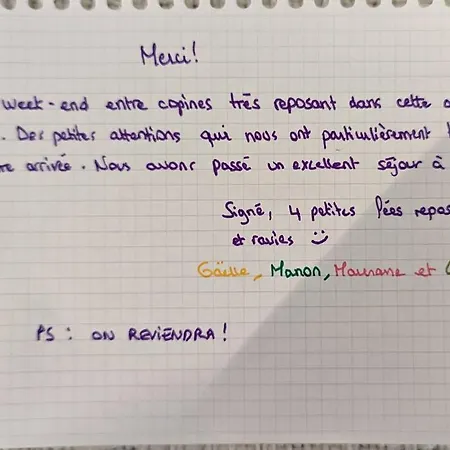 Merci!
week-end entre copines très reposant dans cette
. Des petites attentions qui nous ont particulièrement
arrivée. Nous avons passé un excellent séjour à
Signé, 4 petites fées repos
et ravies :)
Gaëlle, Manon, Maurane et
PS : ON REVIENDRA!